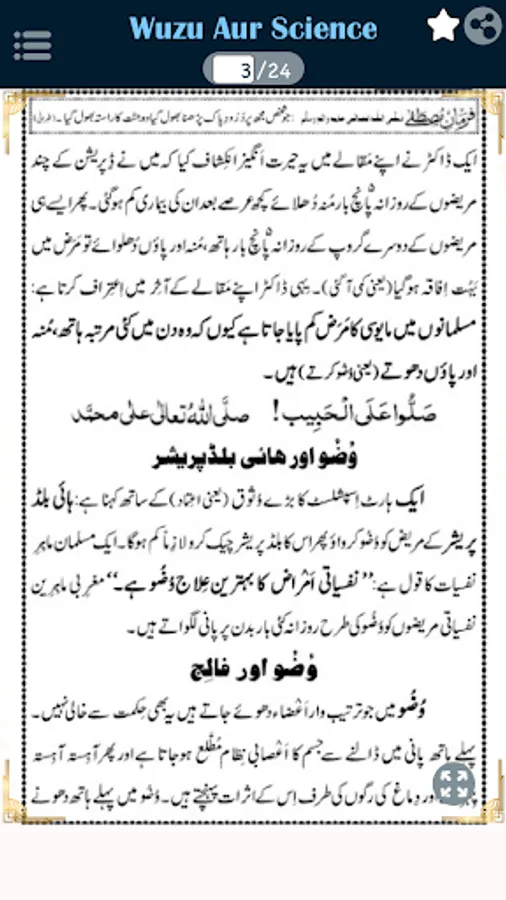 Wuzu Aur Science
3/24
فرمانِ مصطفٰے صلی اللہ تعالیٰ علیہ واٰلہٖ وسلم : جو شخص مجھ پر دُرُودِ پاک پڑھنا بھول گیا وہ جنت کا راستہ بھول گیا۔ (طبرانی)
ایک ڈاکٹر نے اپنے مَقالے میں یہ حیرت اَنگیز اِنکِشاف کیا کہ میں نے ڈِپریشن کے چند
مریضوں کے روزانہ پانچ بار مُنہ دُھلائے کچھ عرصے بعد ان کی بیماری کم ہوگئی۔ پھر ایسے ہی
مریضوں کے دوسرے گروپ کے روزانہ پانچ بار ہاتھ، مُنہ اور پاؤں دُھلوائے تو مَرَض میں
بَہُت اِفاقہ ہوگیا (یعنی کمی آگئی)۔ یہی ڈاکٹر اپنے مَقالے کے آخِر میں اِعتِراف کرتا ہے:
مسلمانوں میں مایوسی کا مَرَض کم پایا جاتا ہے کیوں کہ وہ دن میں کئی مرتبہ ہاتھ، مُنہ
اور پاؤں دھوتے (یعنی وُضو کرتے) ہیں۔
صَلُّوا عَلَی الْحَبِیب! صلَّی اللّٰہُ تعالٰی علٰی محمَّد
وُضُو اور ہائی بلڈ پریشر
ایک ہارٹ اِسپشلسٹ کا بڑے وُثوق (یعنی اعتِماد) کے ساتھ کہنا ہے: ہائی بلڈ
پریشر کے مریض کو وُضو کرواؤ پھر اس کا بلڈ پریشر چیک کرو لازِماً کم ہوگا۔ ایک مسلمان ماہرِ
نفسیات کا قول ہے: ’’نفسیاتی اَمراض کا بہترین عِلاج وُضُو ہے۔‘‘ مغربی ماہِرین
نفسیاتی مریضوں کو وُضُو کی طرح روزانہ کئی بار بدن پر پانی لگواتے ہیں۔
وُضُو اور فالِج
وُضُو میں جو ترتیب وار اَعضاء دھوئے جاتے ہیں یہ بھی حِکمت سے خالی نہیں۔
پہلے ہاتھ پانی میں ڈالنے سے جِسم کا اَعصابی نِظام مُطَّلع ہوجاتا ہے اور پھر آہِستہ آہِستہ
اور دِماغ کی رگوں کی طرف اِس کے اثرات پہنچتے ہیں۔ وُضُو میں پہلے ہاتھ دھونے